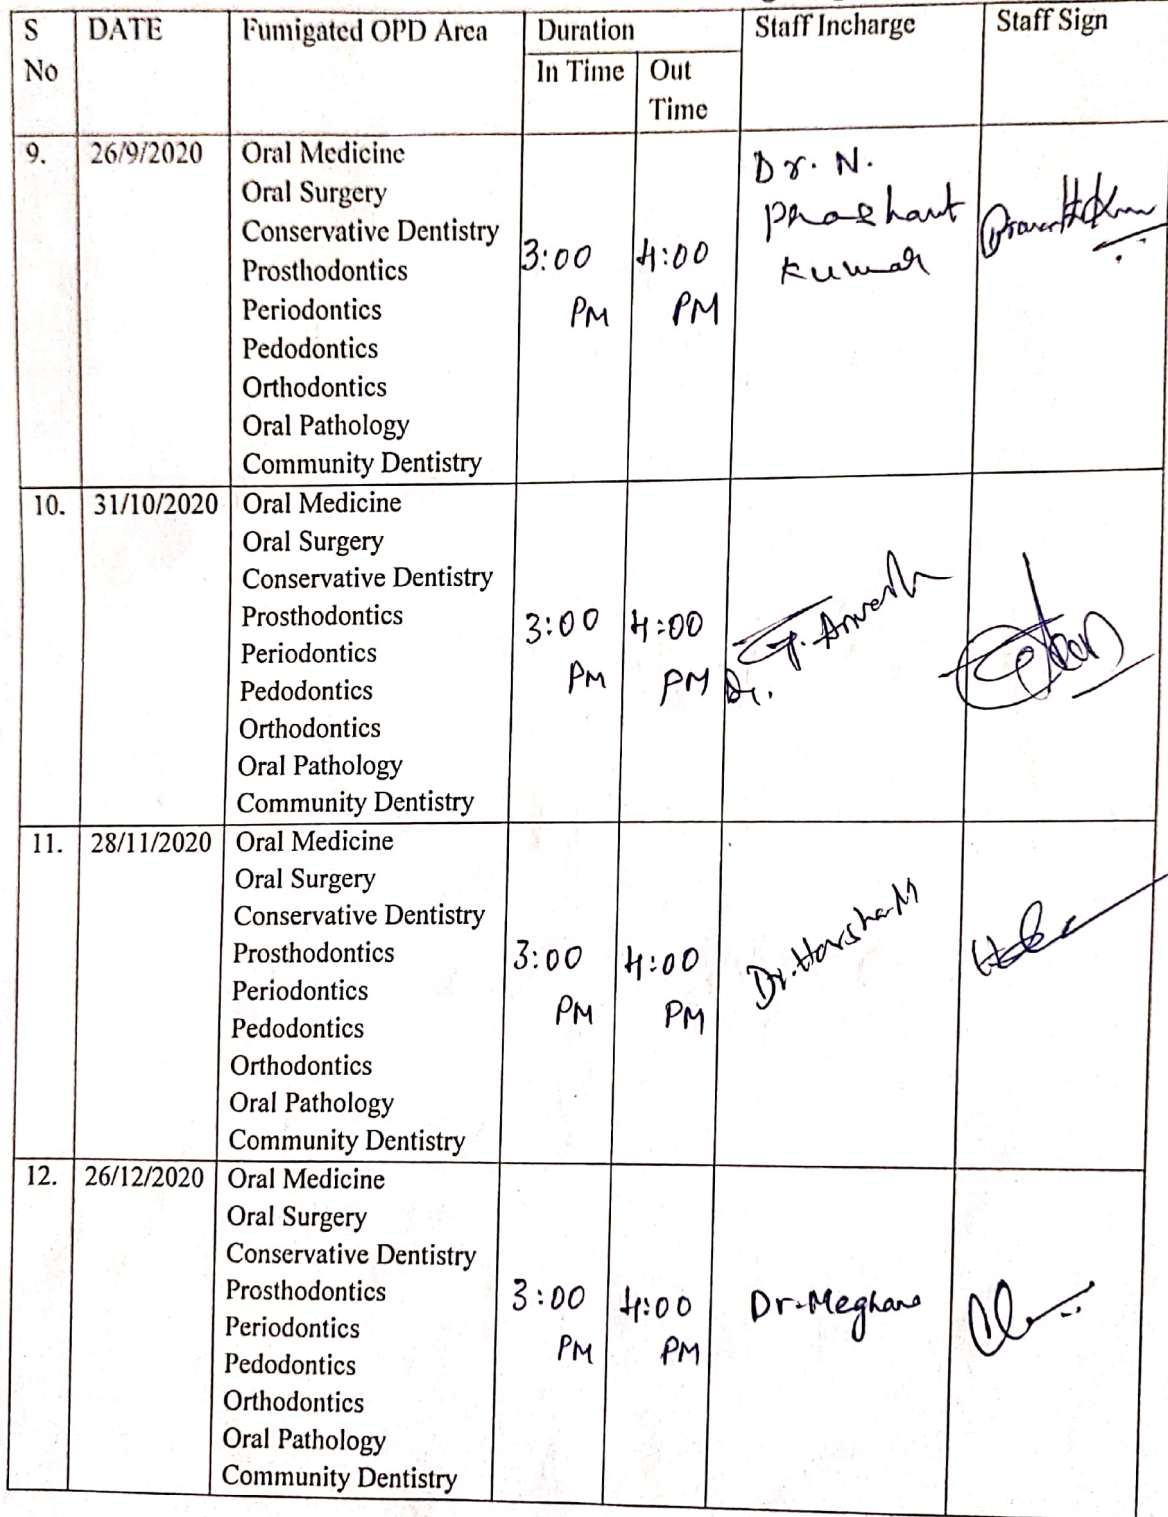 S No DATE Fumigated OPD Area Duration Staff Incharge Staff Sign
In Time Out Time
9. 26/9/2020 Oral Medicine
Oral Surgery
Conservative Dentistry
Prosthodontics
Periodontics
Pedodontics
Orthodontics
Oral Pathology
Community Dentistry
3:00 PM
4:00 PM
Dr. N.
Prashant
Kumar
10. 31/10/2020 Oral Medicine
Oral Surgery
Conservative Dentistry
Prosthodontics
Periodontics
Pedodontics
Orthodontics
Oral Pathology
Community Dentistry
3:00 PM
4:00 PM
Dr.
11. 28/11/2020 Oral Medicine
Oral Surgery
Conservative Dentistry
Prosthodontics
Periodontics
Pedodontics
Orthodontics
Oral Pathology
Community Dentistry
3:00 PM
4:00 PM
Dr. Harsha M
12. 26/12/2020 Oral Medicine
Oral Surgery
Conservative Dentistry
Prosthodontics
Periodontics
Pedodontics
Orthodontics
Oral Pathology
Community Dentistry
3:00 PM
4:00 PM
Dr. Meghana